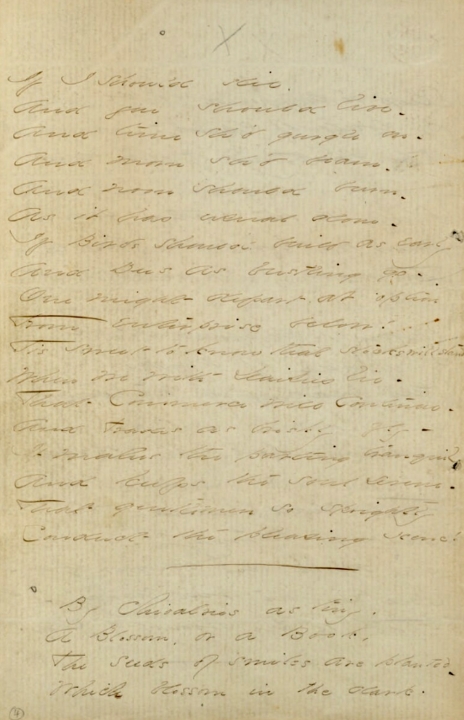 If I should die.
And you should live.
And time sh'd gurgle on.
And morn sh'd beam.
And noon should burn.
As it has usual done.
If Birds should build as early
And Bees as bustling go.
One might depart at option
From enterprise below.
'Tis sweet to know that stocks will stand
When we with Daisies lie.
That Commerce will continue.
And Trades as briskly fly.
It makes the parting tranquil
And keeps the soul serene.
That gentlemen so sprightly
Conduct the pleasing scene!
By Chivalries as tiny.
A Blossom, or a Book.
The seeds of smiles are planted
Which blossom in the dark.